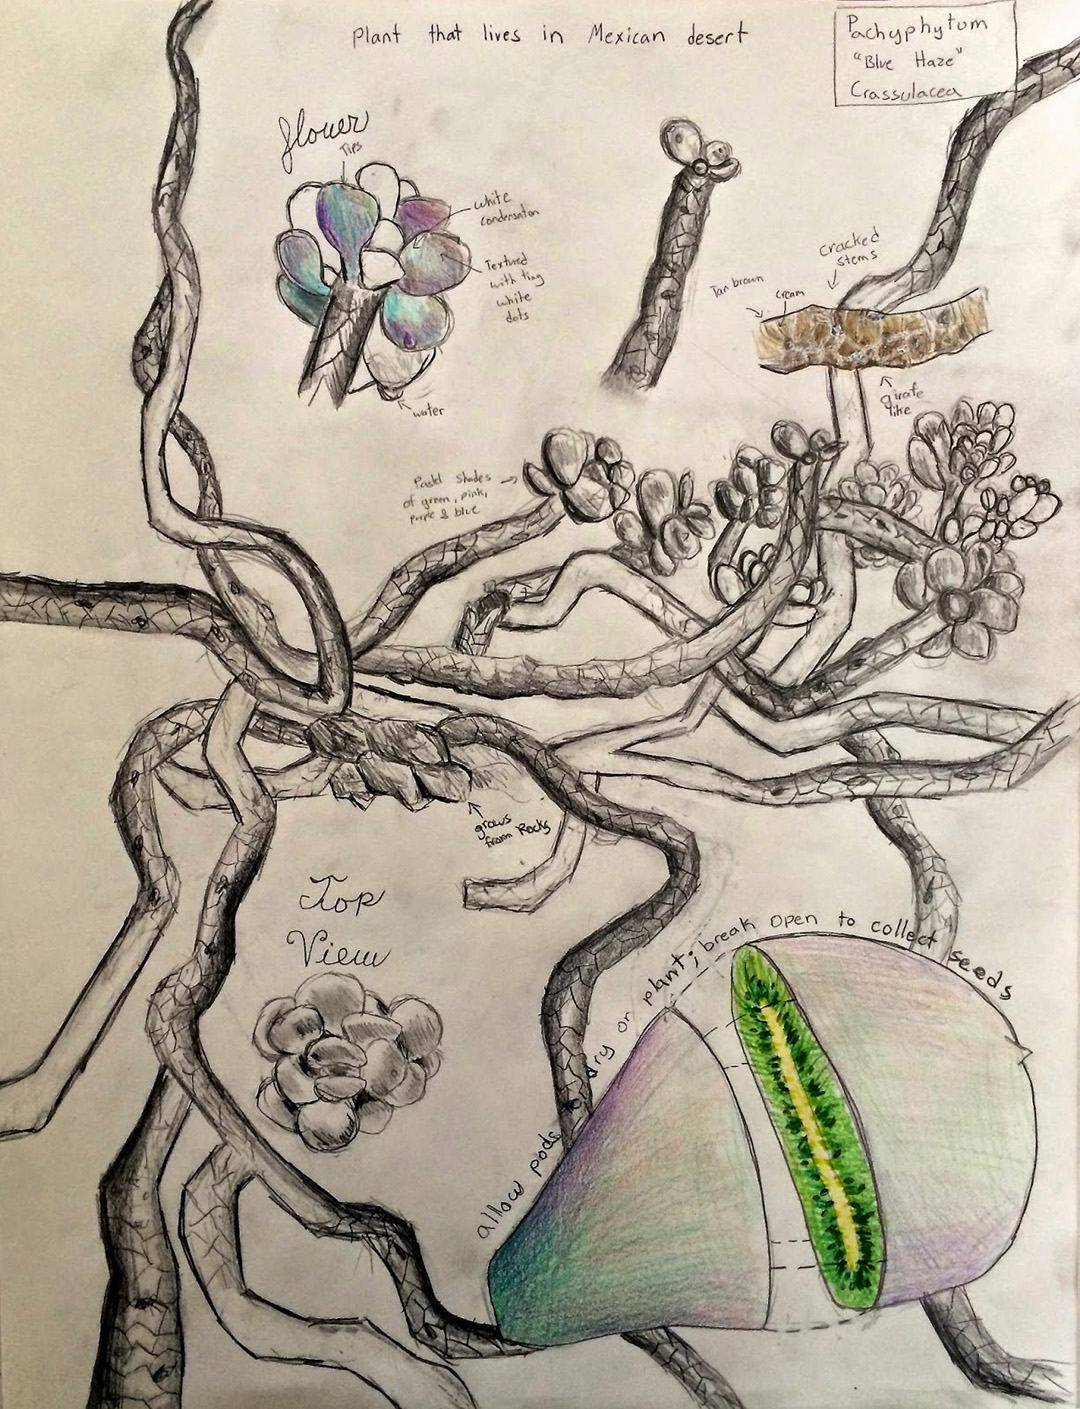 Plant that lives in Mexican desert
Pachyphytum
"Blue Haze"
Crassulacea
flower
Tips
white
condensaton
Textured
with ting
white
dots
water
cracked
stems
Tan brown
cream
girafe
like
Pastl Shades
of green, pink,
purple & blue
grows
from Rocks
Top
View
allow pods dry or plant; break open to collect seeds